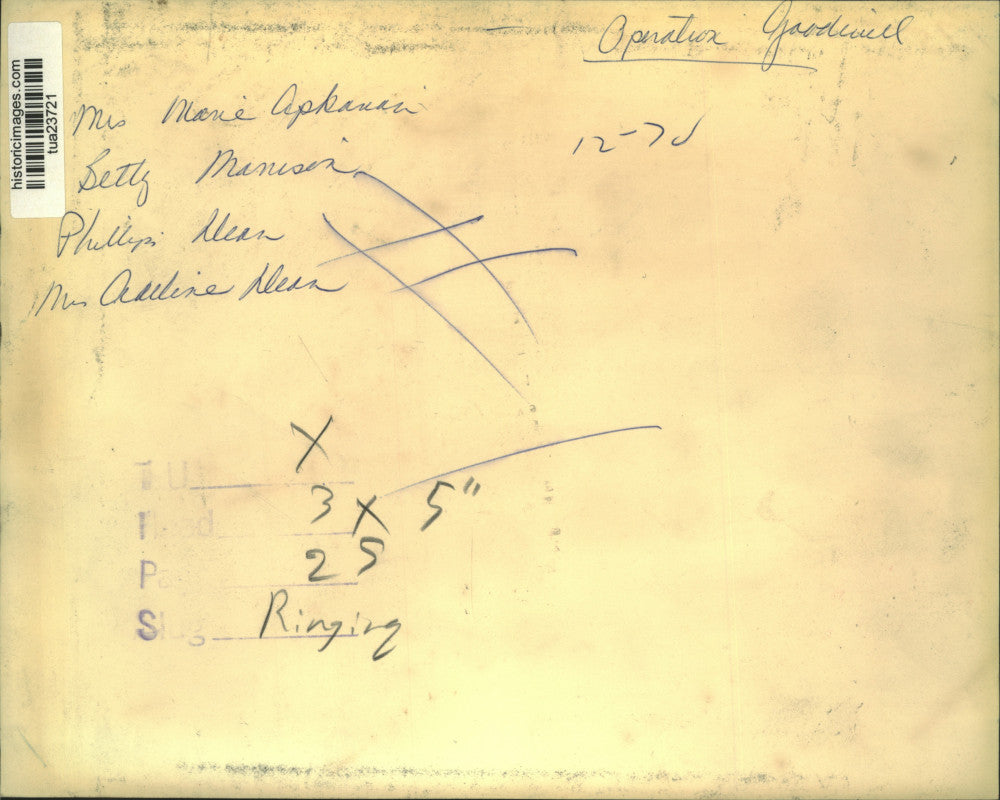 Operation Goodwill
historicimages.com
tua23721
Mrs Marie Apkarian
12-70
Betty Manison
Phillips Dean
Mrs Adeline Dean
X
TU
3 x 5"
P 25
Slug Ringing